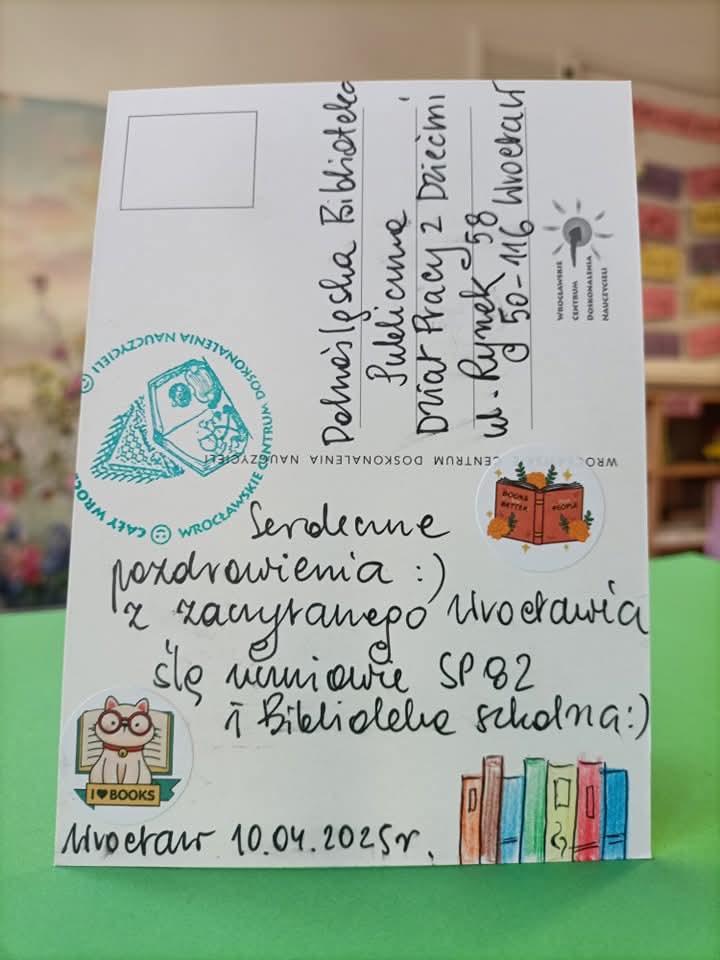 Dolnośląska Biblioteka
Publiczna
Dział Pracy z Dziećmi
ul. Rynek 58
50-116 Wrocław
WROCŁAWSKIE
CENTRUM
DOSKONALENIA
NAUCZYCIELI
WROCŁAWSKIE CENTRUM DOSKONALENIA NAUCZYCIELI
WROCŁAWSKIE CENTRUM DOSKONALENIA NAUCZYCIELI
CAŁY WROC
BOOKS
BETTER
PEOPLE
Serdeczne
pozdrowienia :)
z zaczytanego Wrocławia
ślą uczniowie SP 82
i Biblioteka szkolna :)
I ♥ BOOKS
Wrocław 10.04.2025r.